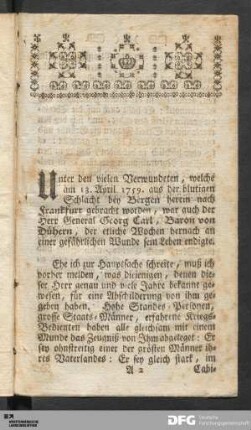 Unter den vielen Verwundeten, welche
am 13. April 1759. aus der blutigen
Schlacht bey Bergen herein nach
Frankfurt gebracht worden, war auch der
Herr General Georg Carl, Baron von
Dyhern, der etliche Wochen hernach an
einer gefährlichen Wunde sein Leben endigte.
Ehe ich zur Hauptsache schreite, muß ich
vorher melden, was diejenigen, denen die-
ser Herr genau und viele Jahre bekannt ge-
wesen, für eine Abschilderung von ihm ge-
geben haben. Hohe Standes-Personen,
grosse Staats-Männer, erfahrene Kriegs-
Bedienten haben alle gleichsam mit einem
Munde das Zeugniß von Ihm abgeleget: Er
sey ohnstreitig einer der grösten Männer ih-
res Vaterlandes: Er sey gleich stark, im
A 2 Cabi-
DFG Deutsche
Forschungsgemeinschaft